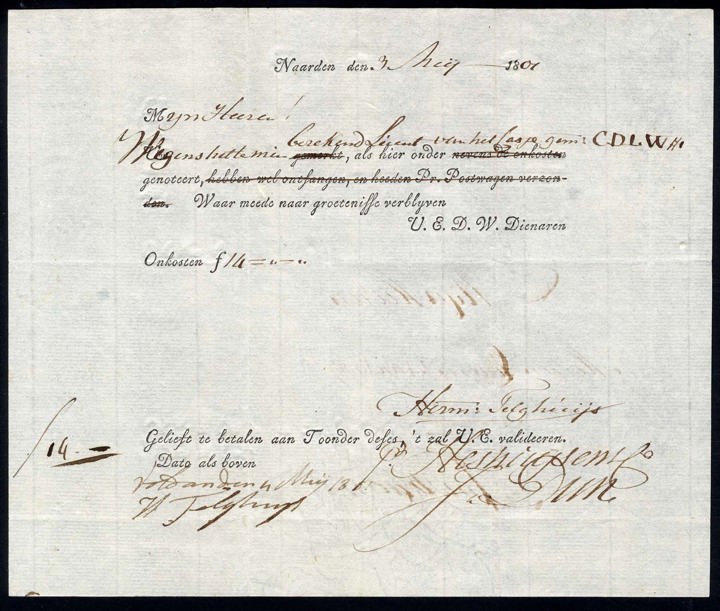 Naarden den 3 Meij 1801
Myn Heeren!
berekend van het gem: C D L W
gemerkt, als hier onder nevens de onkosten
genoteert, hebben wel ontfangen, en heeden Pr. Postwagen verzon-
den. Waar meede naar groetenisse verblyven
U. E. D. W. Dienaren
Onkosten ƒ 14 = „ - „
Herm: Telghuijs
ƒ 14 . -
Gelieft te betalen aan Toonder deses, 't zal U. E. valideeren.
Dato als boven
voldaan den Meij
Telghuijs